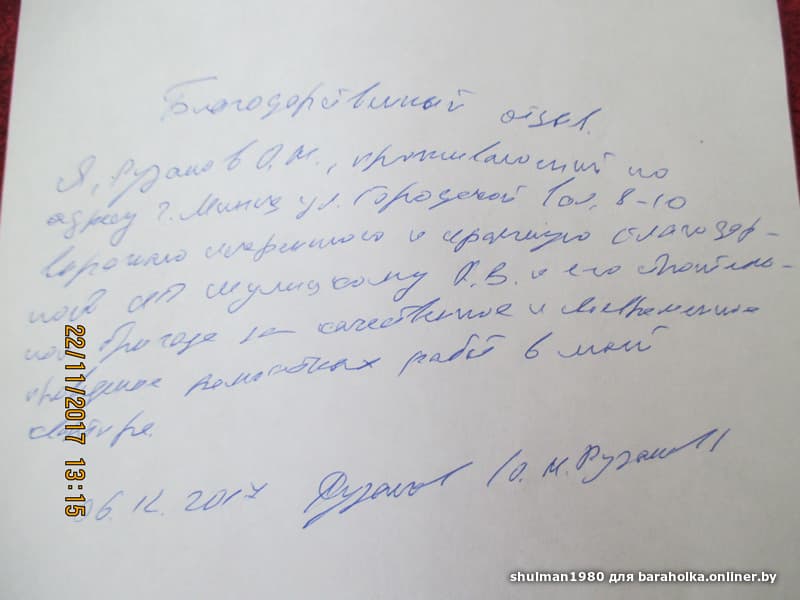 Благодарственный отзыв.
Я, Рузанов О.М., проживающий по
адресу г. Минск ул. Городской Вал, 8-10
выражаю искреннюю и огромную благодар-
ность ИП Шулицкому А.В. и его строитель-
ной бригаде за качественное и своевременное
проведение ремонтных работ в моей
квартире.
06.12.2017 Рузанов (О.М. Рузанов)
22/11/2017 13:15
shulman1980 для baraholka.onliner.by